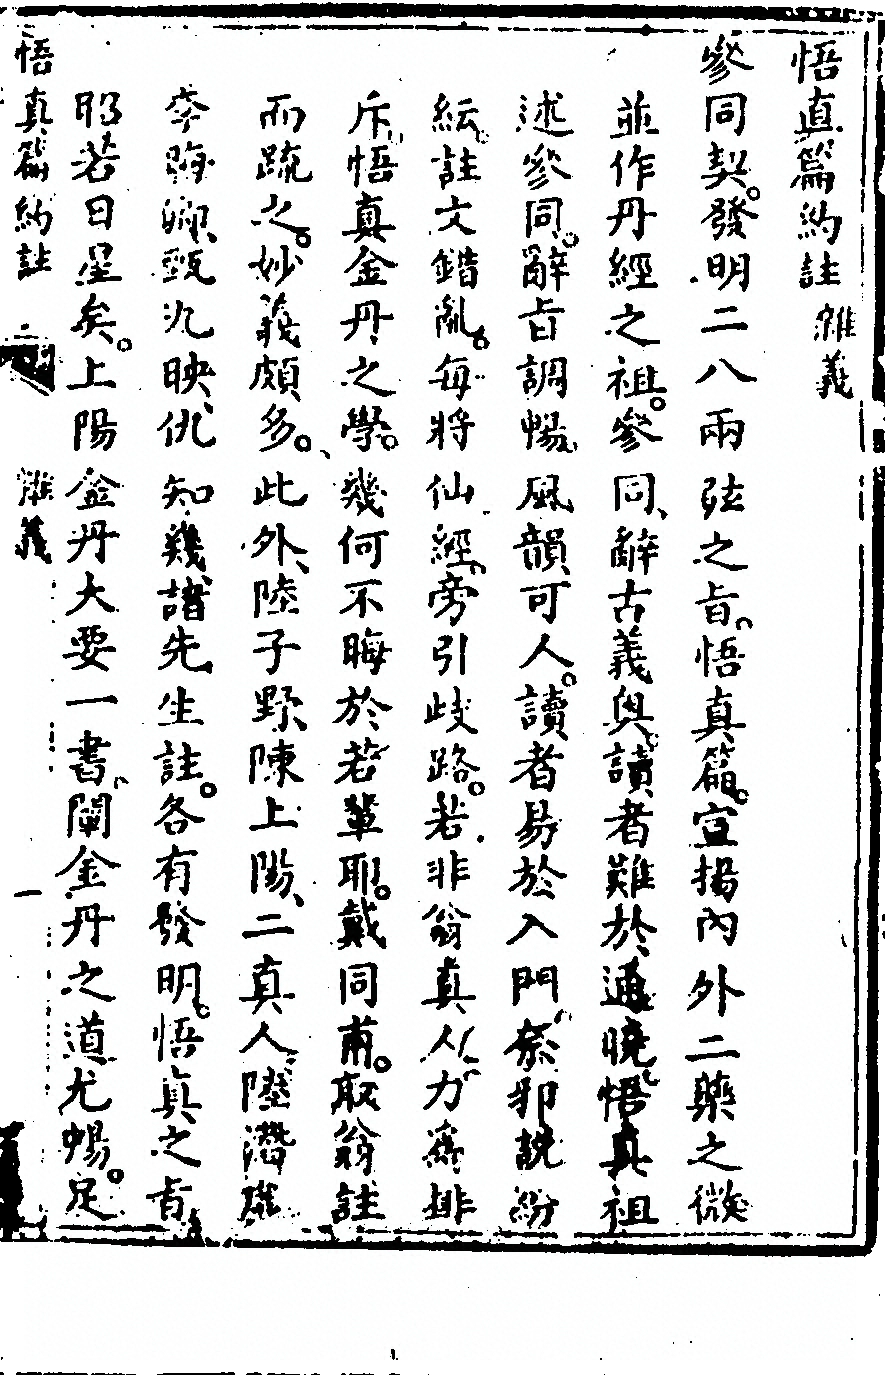 悟真篇約註 雜義
參同契。發明二八兩弦之旨。悟真篇。宣揚內外二藥之微
並作丹經之祖。參同辭古義奧。讀者難於通曉。悟真祖
述參同。辭旨調暢。風韻可人。讀者易於入門。奈邪說紛
紜。註文錯亂。每將仙經。旁引歧路。若非翁真人力為排
斥。悟真金丹之學。幾何不晦於若輩耶。戴同甫。取翁註
而疏之。妙義頗多。此外、陸子野、陳上陽、二真人、陸潛虛
李晦卿、甄九映、仇知幾諸先生註。各有發明。悟真之旨
昭若日星矣。上陽金丹大要一書、闡金丹之道尤暢。足
悟真篇約註 雜義 一